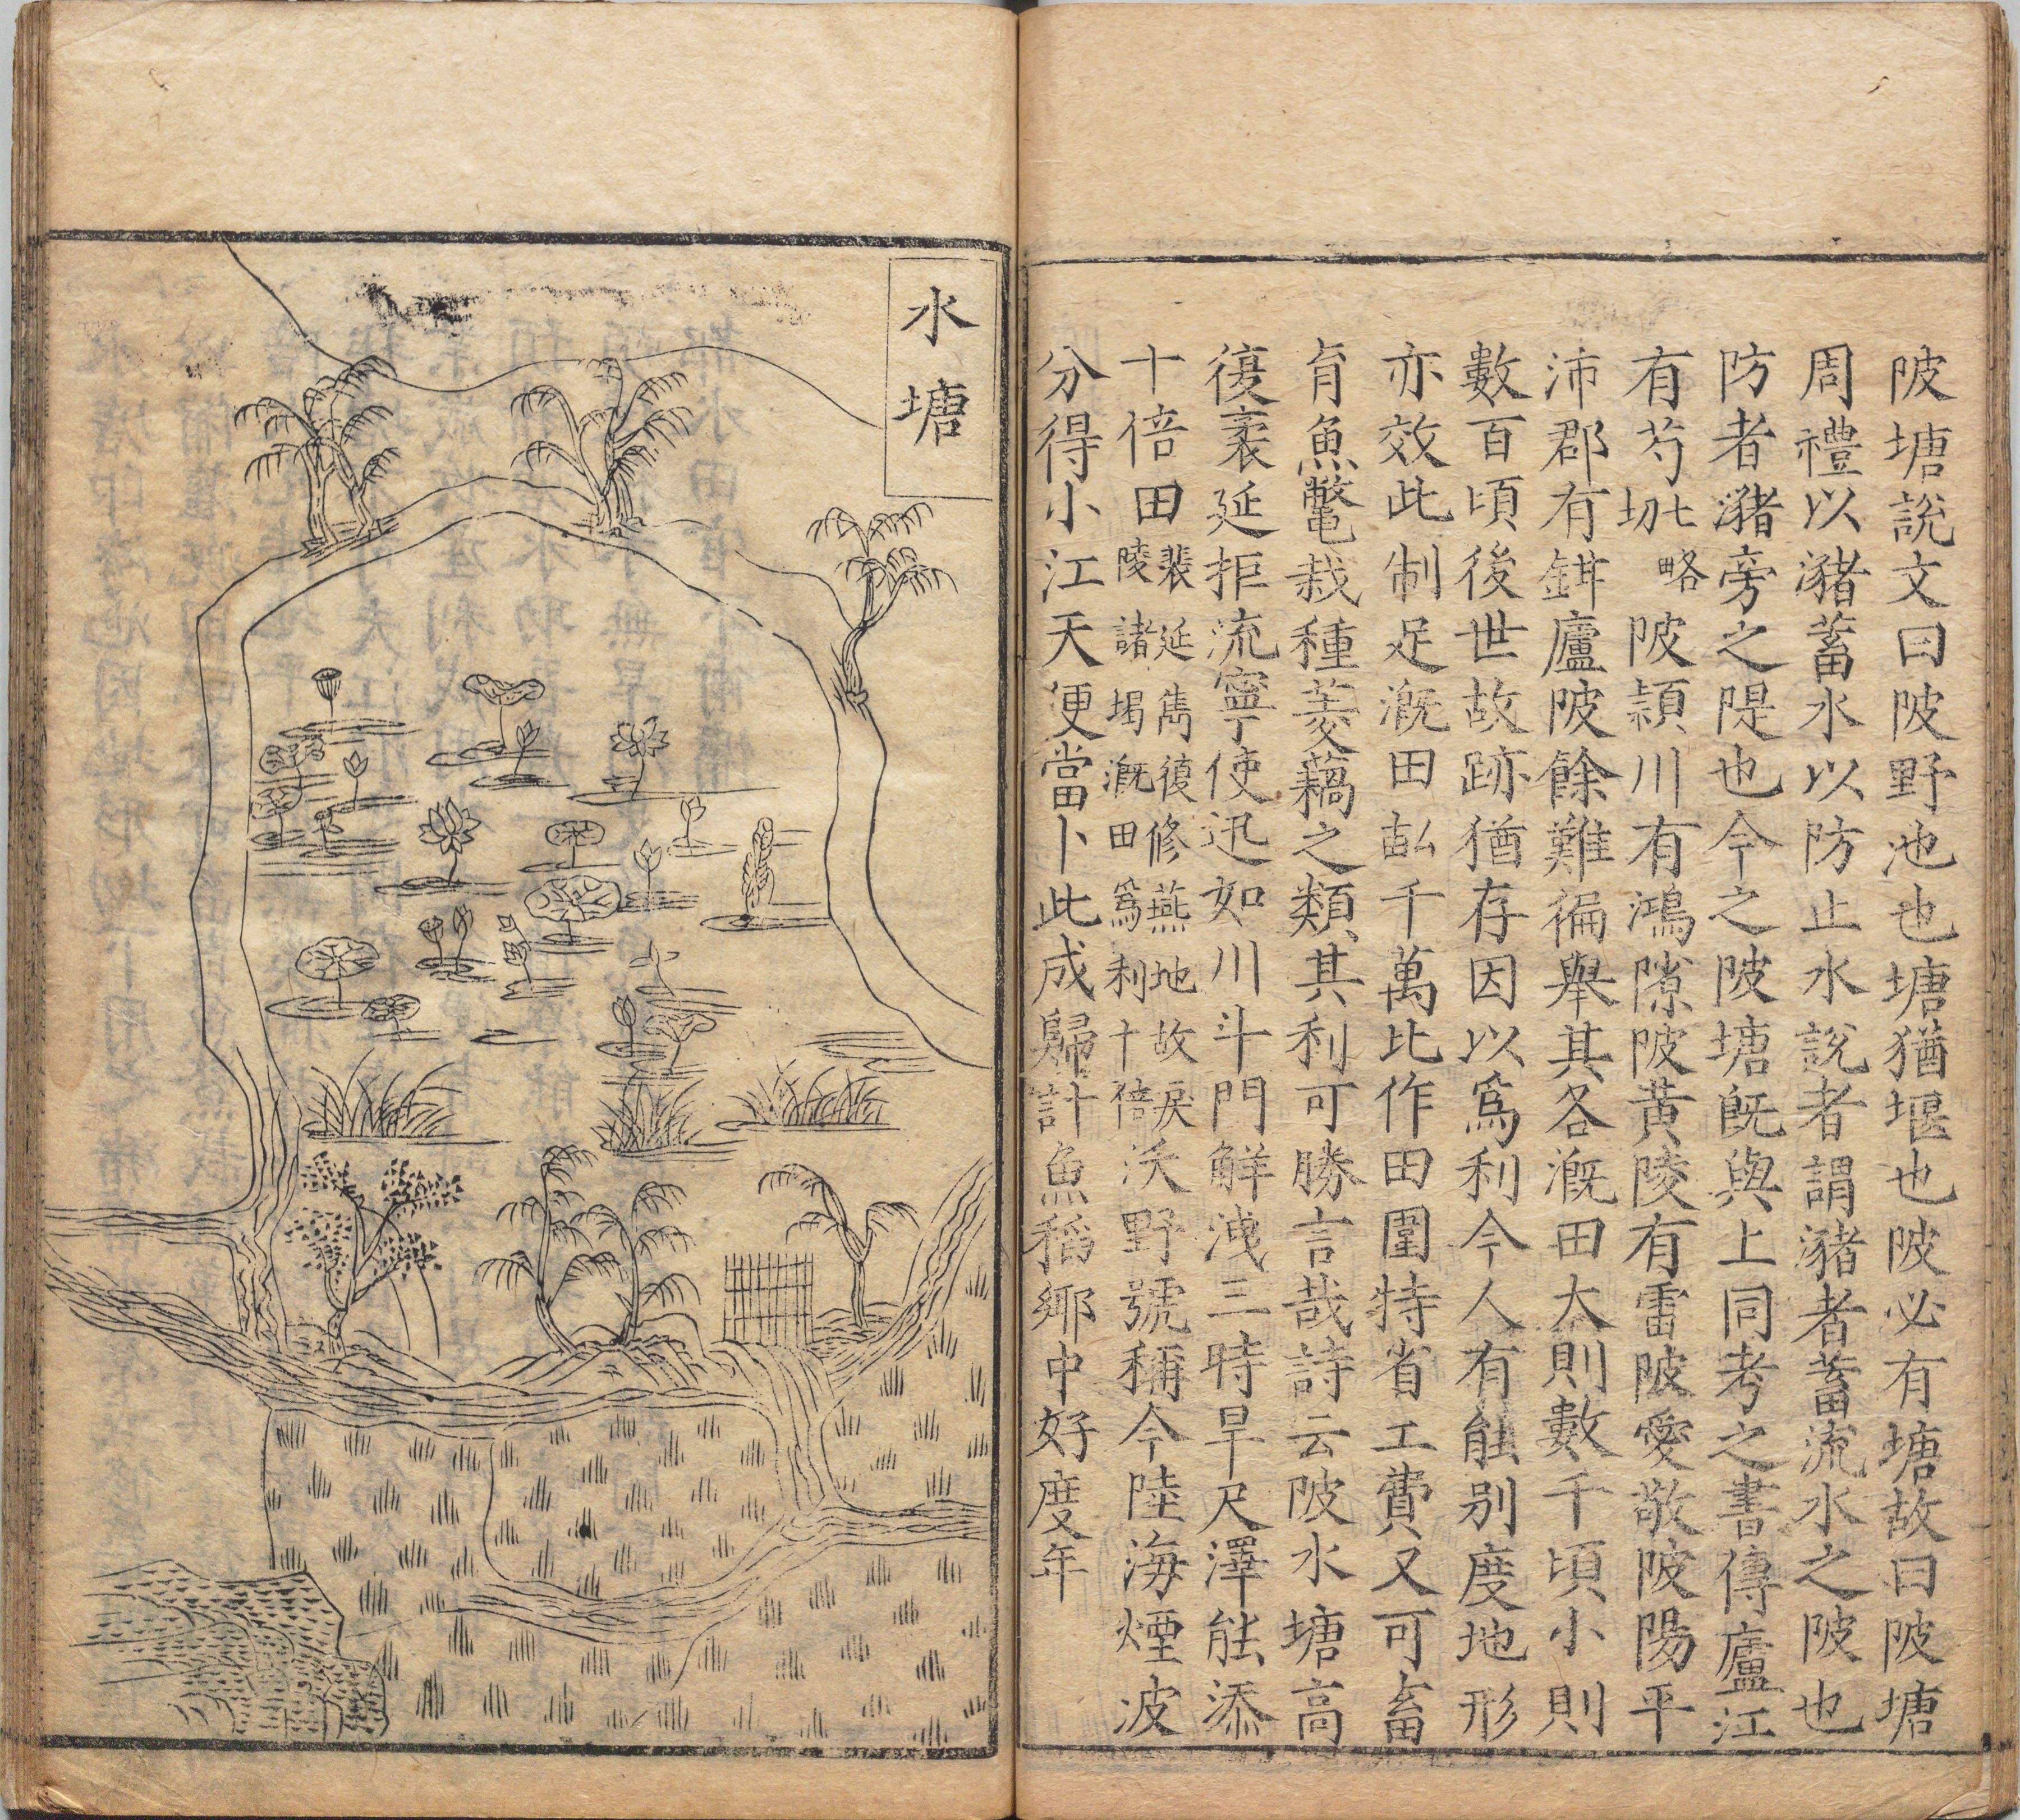 陂塘說文曰陂野池也塘猶堰也陂必有塘故曰陂塘
周禮以瀦蓄水以防止水說者謂瀦者蓄流水之陂也
防者瀦旁之隄也今之陂塘旣與上同考之書傳廬江
有芍七略切陂頴川有鴻隙陂黃陵有雷陂愛敬陂陽平
沛郡有鉗廬陂餘難徧舉其各溉田大則數千頃小則
數百頃後世故跡猶存因以爲利今人有能别度地形
亦效此制足溉田畝千萬比作田圍特省工費又可畜
育魚鼈栽種菱藕之類其利可勝言哉詩云陂水塘高
復袤延拒流寧使迅如川斗門觧洩三時旱尺澤能添
十倍田裴延雋復修燕地故戾陵諸堨溉田爲利十倍沃野號稱今陸海煙波
分得小江天便當卜此成歸計魚稻鄉中好度年
水塘